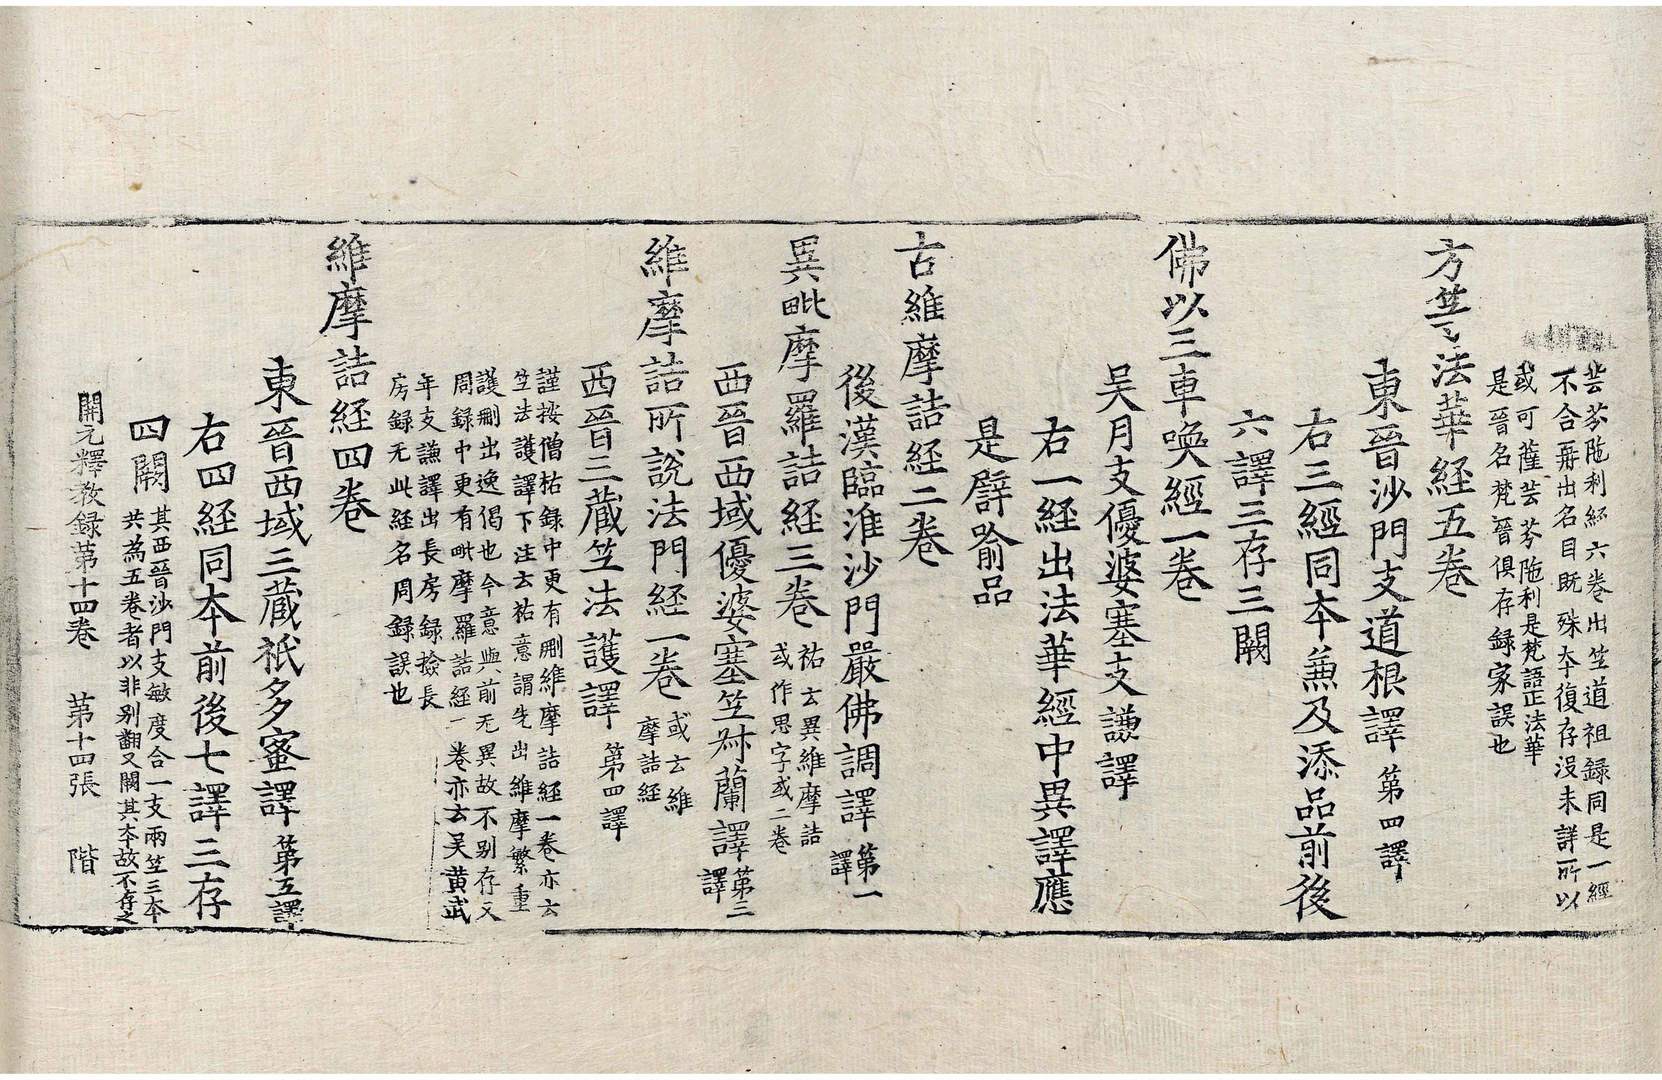 芸芬陁利經六卷出笁道祖録同是一經
不合再出名目旣殊夲復存没未詳所以
或可薩芸芬陁利是梵語正法華
是晉名梵晉俱存録家誤也
方䓁法華経五卷
東晉沙門支道根譯第四譯
右三經同夲兼及添品前後
六譯三存三闕
佛以三車喚經一卷
吴月支優婆塞支謙譯
右一経出法華經中異譯應
是譬喻品
古維摩詰経二卷
後漢臨淮沙門嚴佛調譯第一
譯
異毗摩羅詰経三卷祐云異維摩詰
或作思字或二卷
西晉西域優婆塞笁叔蘭譯第三
譯
維摩詰所說法門経一卷或云維
摩詰経
西晉三藏笁法護譯第四譯
謹按僧祐録中更有刪維摩詰経一卷亦云
笁法護譯下注云祐意謂先出維摩繁重
護刪出逸偈也今意與前无異故不别存又
周録中更有毗摩羅詰経一卷亦云吴黄武
年支謙譯出長房録撿長
房録无此経名周録誤也
維摩詰経四卷
東晉西域三藏祇多蜜譯第五譯
右四経同夲前後七譯三存
四闕其西晉沙門支敏度合一支兩笁三夲
共為五卷者以非别翻又闕其夲故不存之
開元釋教録第十四卷 第十四張 階